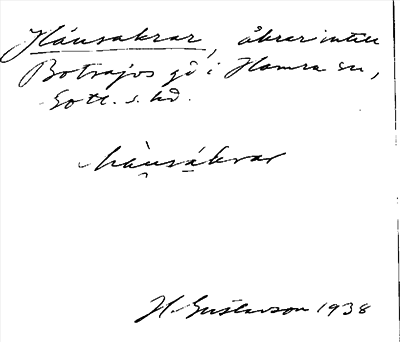 Hánsakrar, åkrar intill
Botrajvs gd i Hamra sn,
Gotl. s. hd.
hànsákrar
H. Gustavson 1938